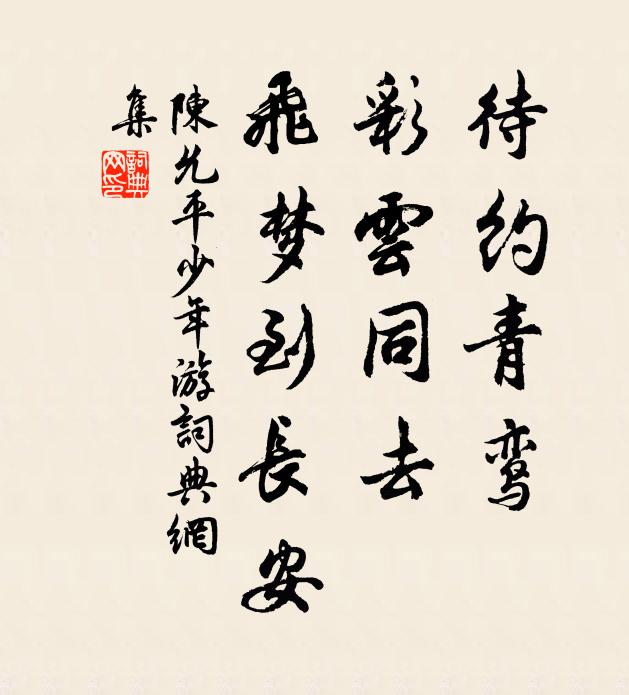 待约青鸾
彩雲同去
飛梦到長安
陳允平少年游詞典網
集
詞典网印